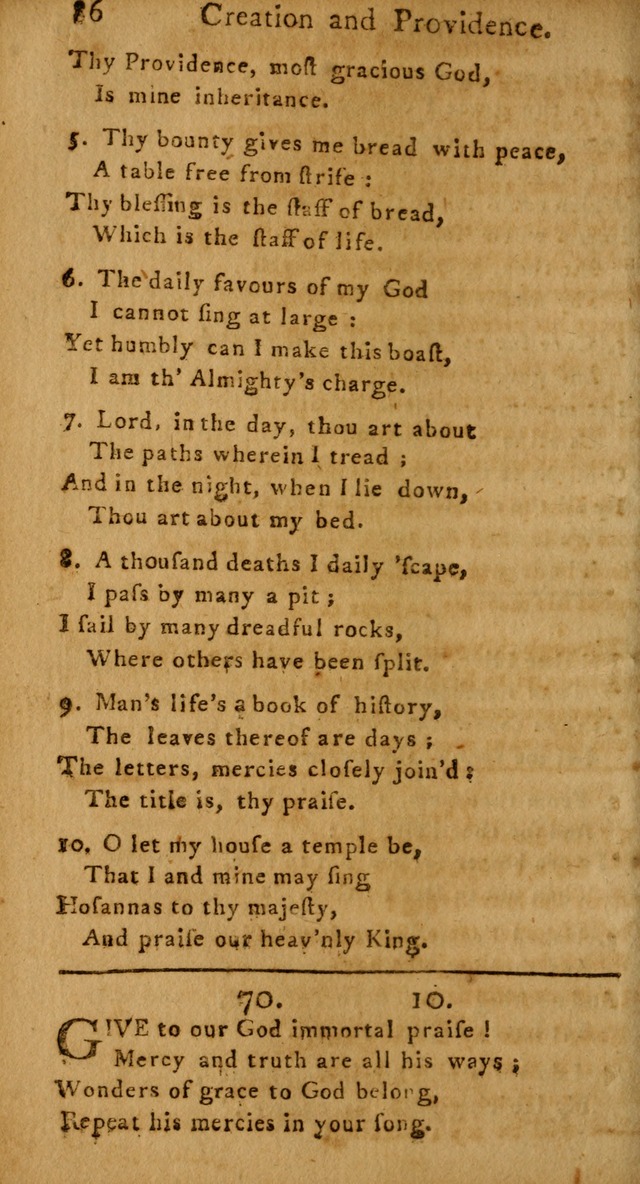 86 Creation and Providence.
Thy Providence, moſt gracious God,
Is mine inheritance.
5. Thy bounty gives me bread with peace,
A table free from ſtrife :
Thy bleſſing is the ſtaff of bread,
Which is the ſtaff of life.
6. The daily favours of my God
I cannot ſing at large :
Yet humbly can I make this boaſt,
I am th' Almighty's charge.
7. Lord, in the day, thou art about
The paths wherein I tread ;
And in the night, when I lie down,
Thou art about my bed.
8. A thouſand deaths I daily 'ſcape,
I paſs by many a pit ;
I ſail by many dreadful rocks,
Where others have been ſplit.
9. Man's life's a book of hiſtory,
The leaves thereof are days ;
The letters, mercies cloſely join'd ;
The title is, thy praiſe.
10. O let my houſe a temple be,
That I and mine may ſing
Hoſannas to thy majeſty,
And praiſe our heav'nly King.
70. 10.
GIVE to our God immortal praiſe !
Mercy and truth are all his ways ;
Wonders of grace to God belong,
Repeat his mercies in your ſong.